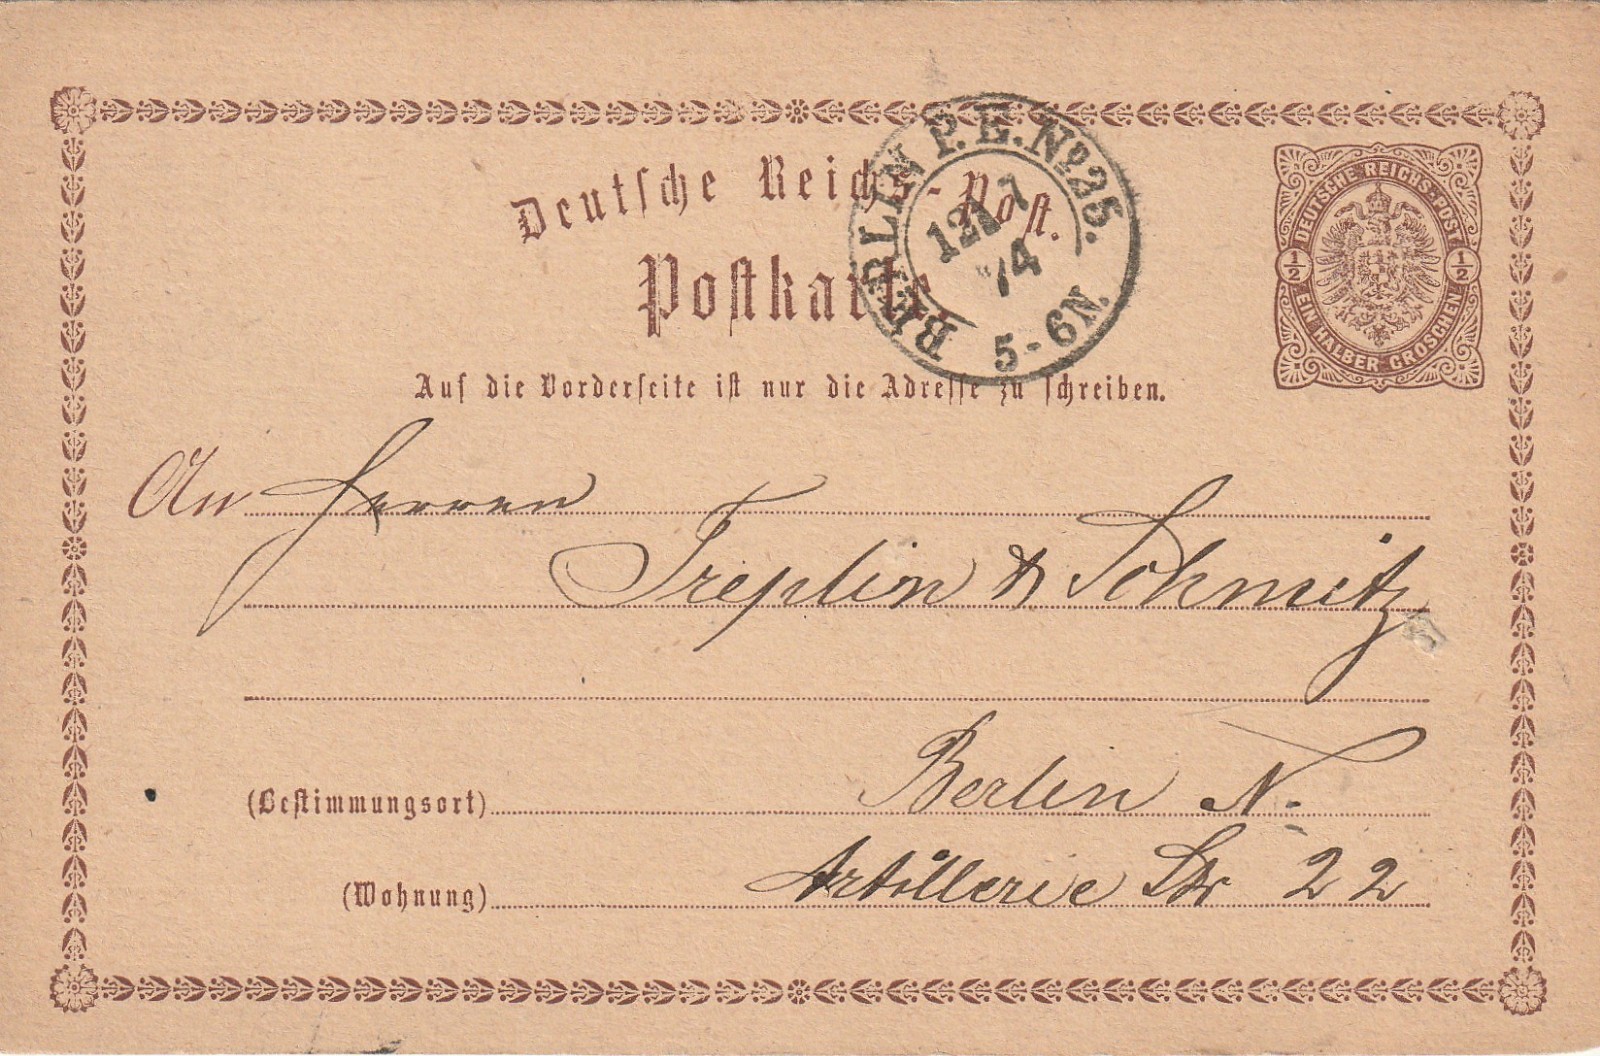 Deutsche Reichs-Post.
Postkarte
BERLIN P.E. No 25.
74
5-6N.
DEUTSCHE REICHS-POST
½ ½
EIN HALBER GROSCHEN
Auf die Vorderseite ist nur die Adresse zu schreiben.
An Herren
Treplin & Schmitz
(Bestimmungsort) Berlin N.
(Wohnung) Artillerie Str 22